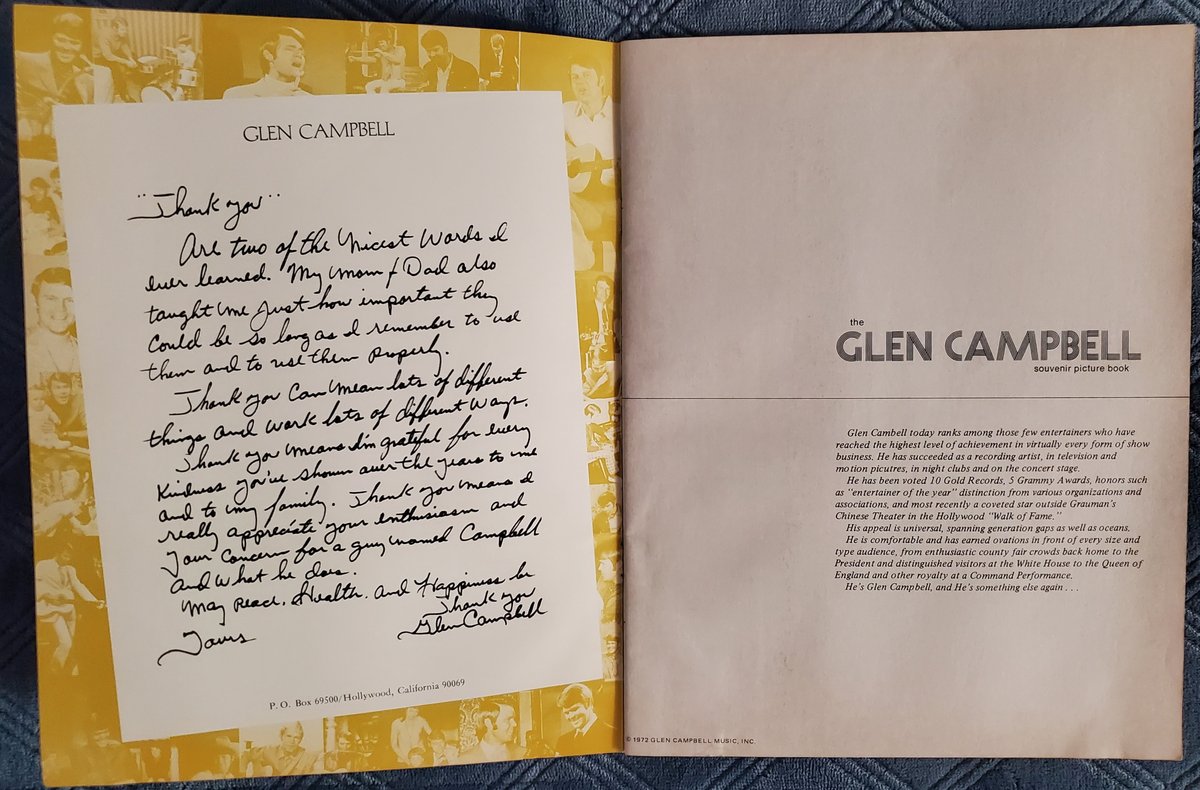 GLEN CAMPBELL
"Thank you"
Are two of the Nicest Words I
ever learned. My Mom & Dad also
taught me Just how important they
Could be so long as I remember to use
them and to use them properly.
Thank you Can Mean lots of different
things and work lots of different ways.
Thank you means I'm grateful for every
Kindness you've shown over the years to me
and to my family. Thank you means I
really appreciate your enthusiasm and
Your Concern for a guy named Campbell
and what he does.
May Peace, Health, and Happiness be
Yours
Thank you
Glen Campbell
P. O. Box 69500/Hollywood, California 90069
the
GLEN CAMPBELL
souvenir picture book
Glen Cambell today ranks among those few entertainers who have
reached the highest level of achievement in virtually every form of show
business. He has succeeded as a recording artist, in television and
motion picutres, in night clubs and on the concert stage.
He has been voted 10 Gold Records, 5 Grammy Awards, honors such
as "entertainer of the year" distinction from various organizations and
associations, and most recently a coveted star outside Grauman's
Chinese Theater in the Hollywood "Walk of Fame."
His appeal is universal, spanning generation gaps as well as oceans,
He is comfortable and has earned ovations in front of every size and
type audience, from enthusiastic county fair crowds back home to the
President and distinguished visitors at the White House to the Queen of
England and other royalty at a Command Performance.
He's Glen Campbell, and He's something else again . . .
© 1972 GLEN CAMPBELL MUSIC, INC.